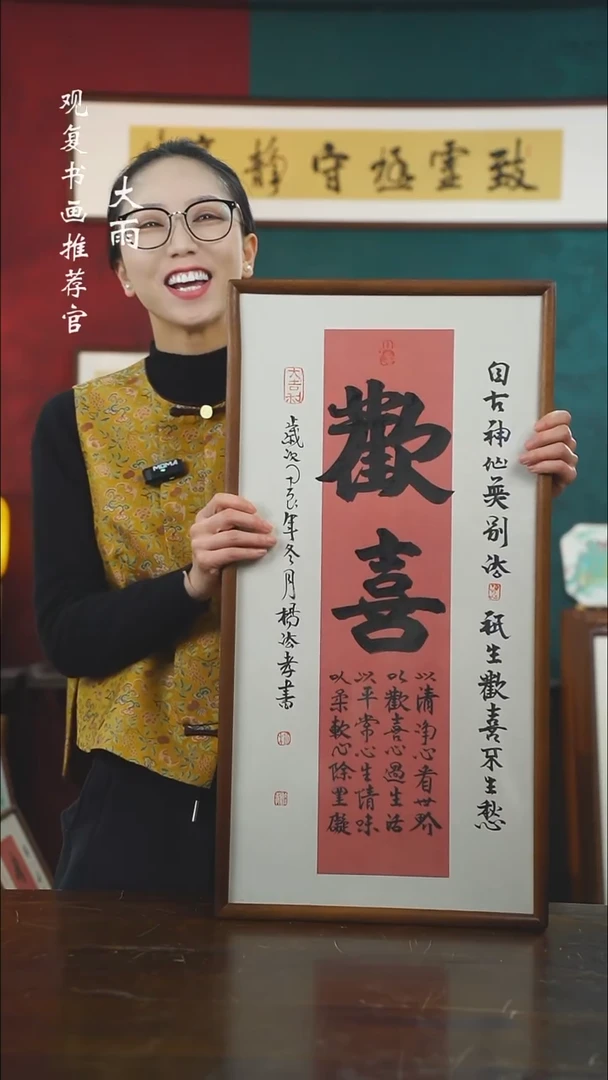 观复书画推荐官
大雨
致虚極守静
自古神仙無别法
祇生歡喜不生愁
歡喜
以清净心看世界
以歡喜心過生活
以平常心生情味
以柔軟心除罣礙
大吉利
歲次年冬月楊法孝書
MOMA